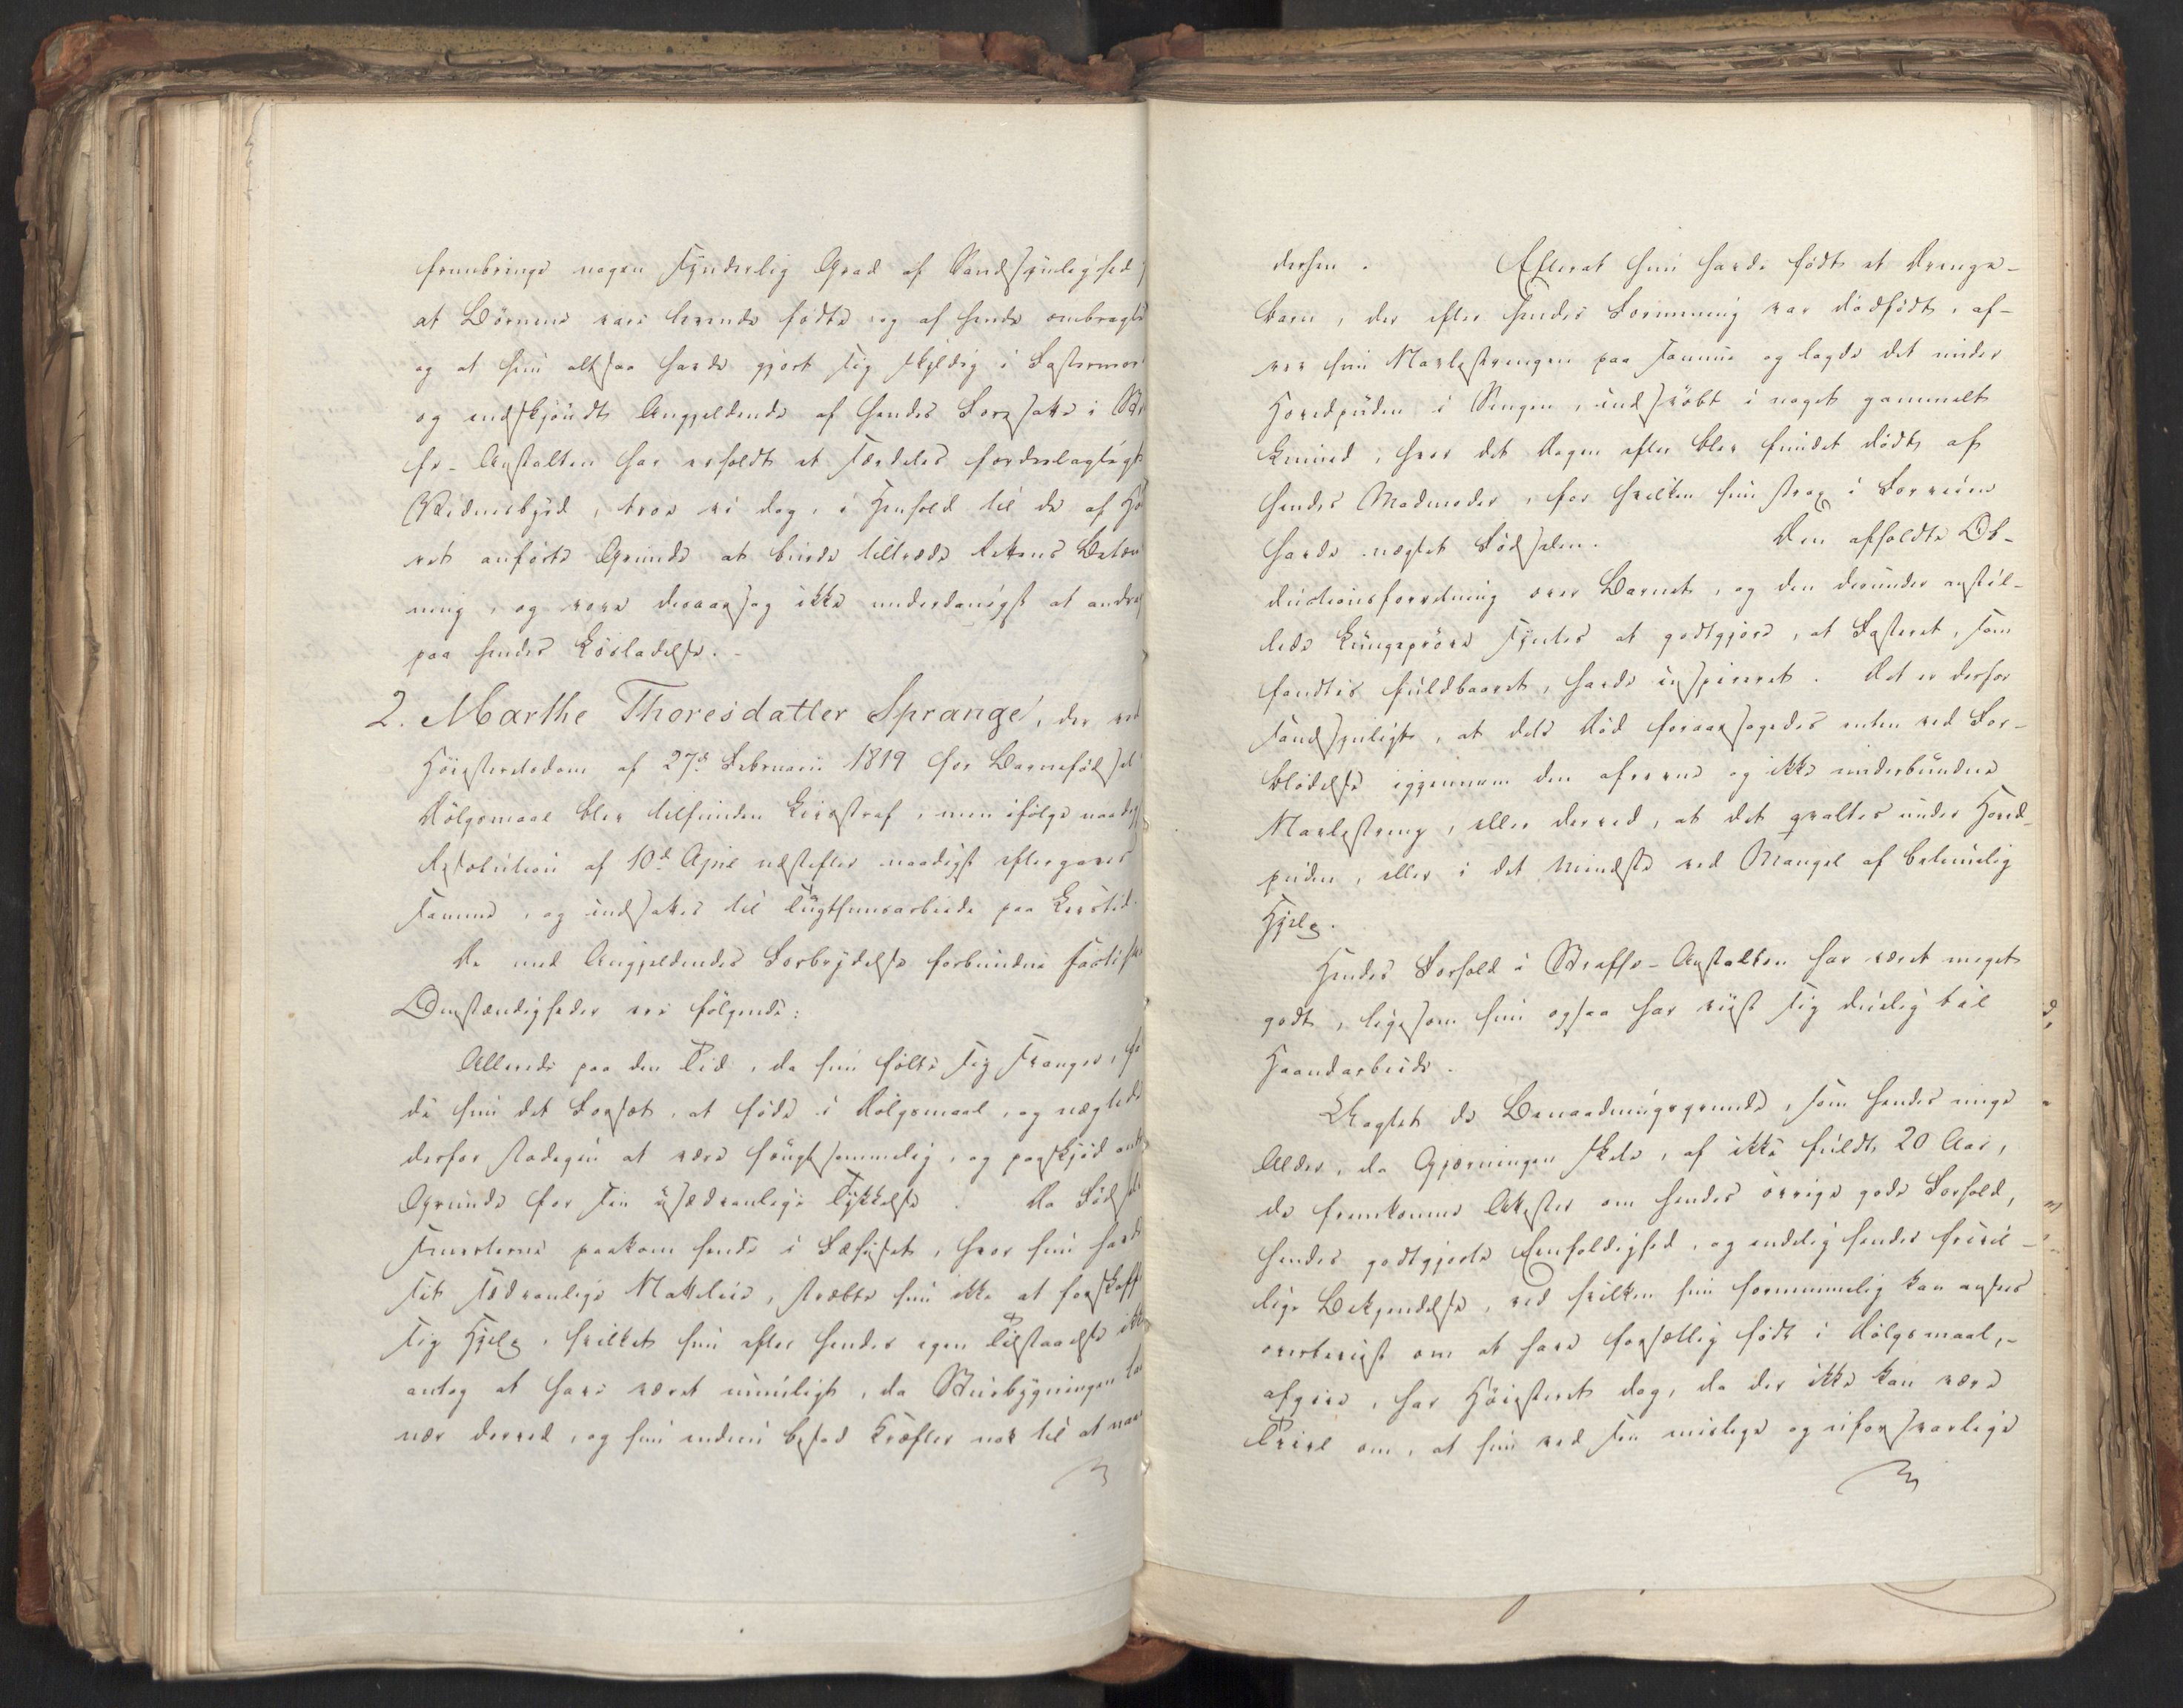 frembringe nogen synderlig Grad af Sandsynlighed,
at Børnene vare levende fødte og af hende ombragte
og at hun altsaa havde gjort sig skyldig i Fostermor
og endskjöndt Angjeldende af hendes Foresatte i Str
fe-Anstalten har erholdt et særdeles fordeelagtigt
Vidnesbyrd, troe vi dog, i Henhold til de af Hö
ret anförte Grunde at burde tiltræde Rettens Betæn
ning, og vove deraarsag ikke underdanigst at andra
paa hendes Lösladelse.-
2. Marthe Thoresdatter Sprange, der ved
Höiesteretsdom af 27d Februarii 1819 for Barnefödsel i
Dölgsmaal blev tilfunden Livsstraf, men ifölge naadigst
Resolution af 10d April næstefter naadigst eftergaves
samme, og indsattes til Tugthuusarbeide paa Livstid.
De med Angjeldendes Forbrydelse forbundne factiske
Omstændigheder ere fölgende:
Allerede paa den Tid, da hun fölte sig svanger, fat
de hun det Forsæt, at föde i Dölgsmaal, og nægtede
derfor stadigen at være frugtsommelig, og paaskjöd andre
Grunde for sin usædvanlige Tykkelse. Da Födsels
Smerterne paakom hende i Fæhuset, hvor hun havde
sit sædvanlige Natteleie, stræbte hun ikke at forskaffe
sig Hjelp, hvilket hun efter hendes egen Tilstaaelse ikke
antog at have været umuligt, da Stuebygningen laae
nær derved, og hun endnu besad Kræfter nok til at naae
derhen. Efterat hun havde födt et Drenge-
barn, der efter hendes Formening var dödfödt, af-
rev hun Navlestrengen paa samme og lagde det under
Hovedpuden i Sengen, indsvöbt i noget gammelt
Linned, hvor det Dagen efter blev fundet dödt af
hendes Madmoder, for hvilken hun strax i Forveien
havde nægtet Födselen. Den afholdte Ob-
ductionsforretning over Barnet, og den derunder anstil-
lede Lungepröve syntes at godtgjöre, at Fosteret, som
fandtes fuldbaaret, havde inspireret. Det er derfor
sandsynligt, at dets Död foraarsagedes enten ved For-
blödelse igjennem den afrevne og ikke underbundne
Navlestreng, eller derved, at det qvaltes under Hoved-
puden, eller i det mindste ved Mangel af betimelig
Hjelp.
Hendes Forhold i Straffe-Anstalten har været meget
godt, ligesom hun ogsaa har viist sig duelig til
Haandarbeide.
Uagtet de Benaadningsgrunde, som hendes unge
Alder, da Gjerningen skete, af ikke fuldt 20 Aar,
de fremkomne Attester om hendes övrige gode Forhold,
hendes godtgjorte Eenfoldighed, og endelig hendes frivil-
lige Bekjendelse, ved hvilken hun fornemmelig kan ansees
overbeviist om at have forsætlig födt i Dölgsmaal,-
afgive, har Höiesteret dog, da der ikke kan være
Tvivl om, at hun ved sin mislige og uforsvarlige